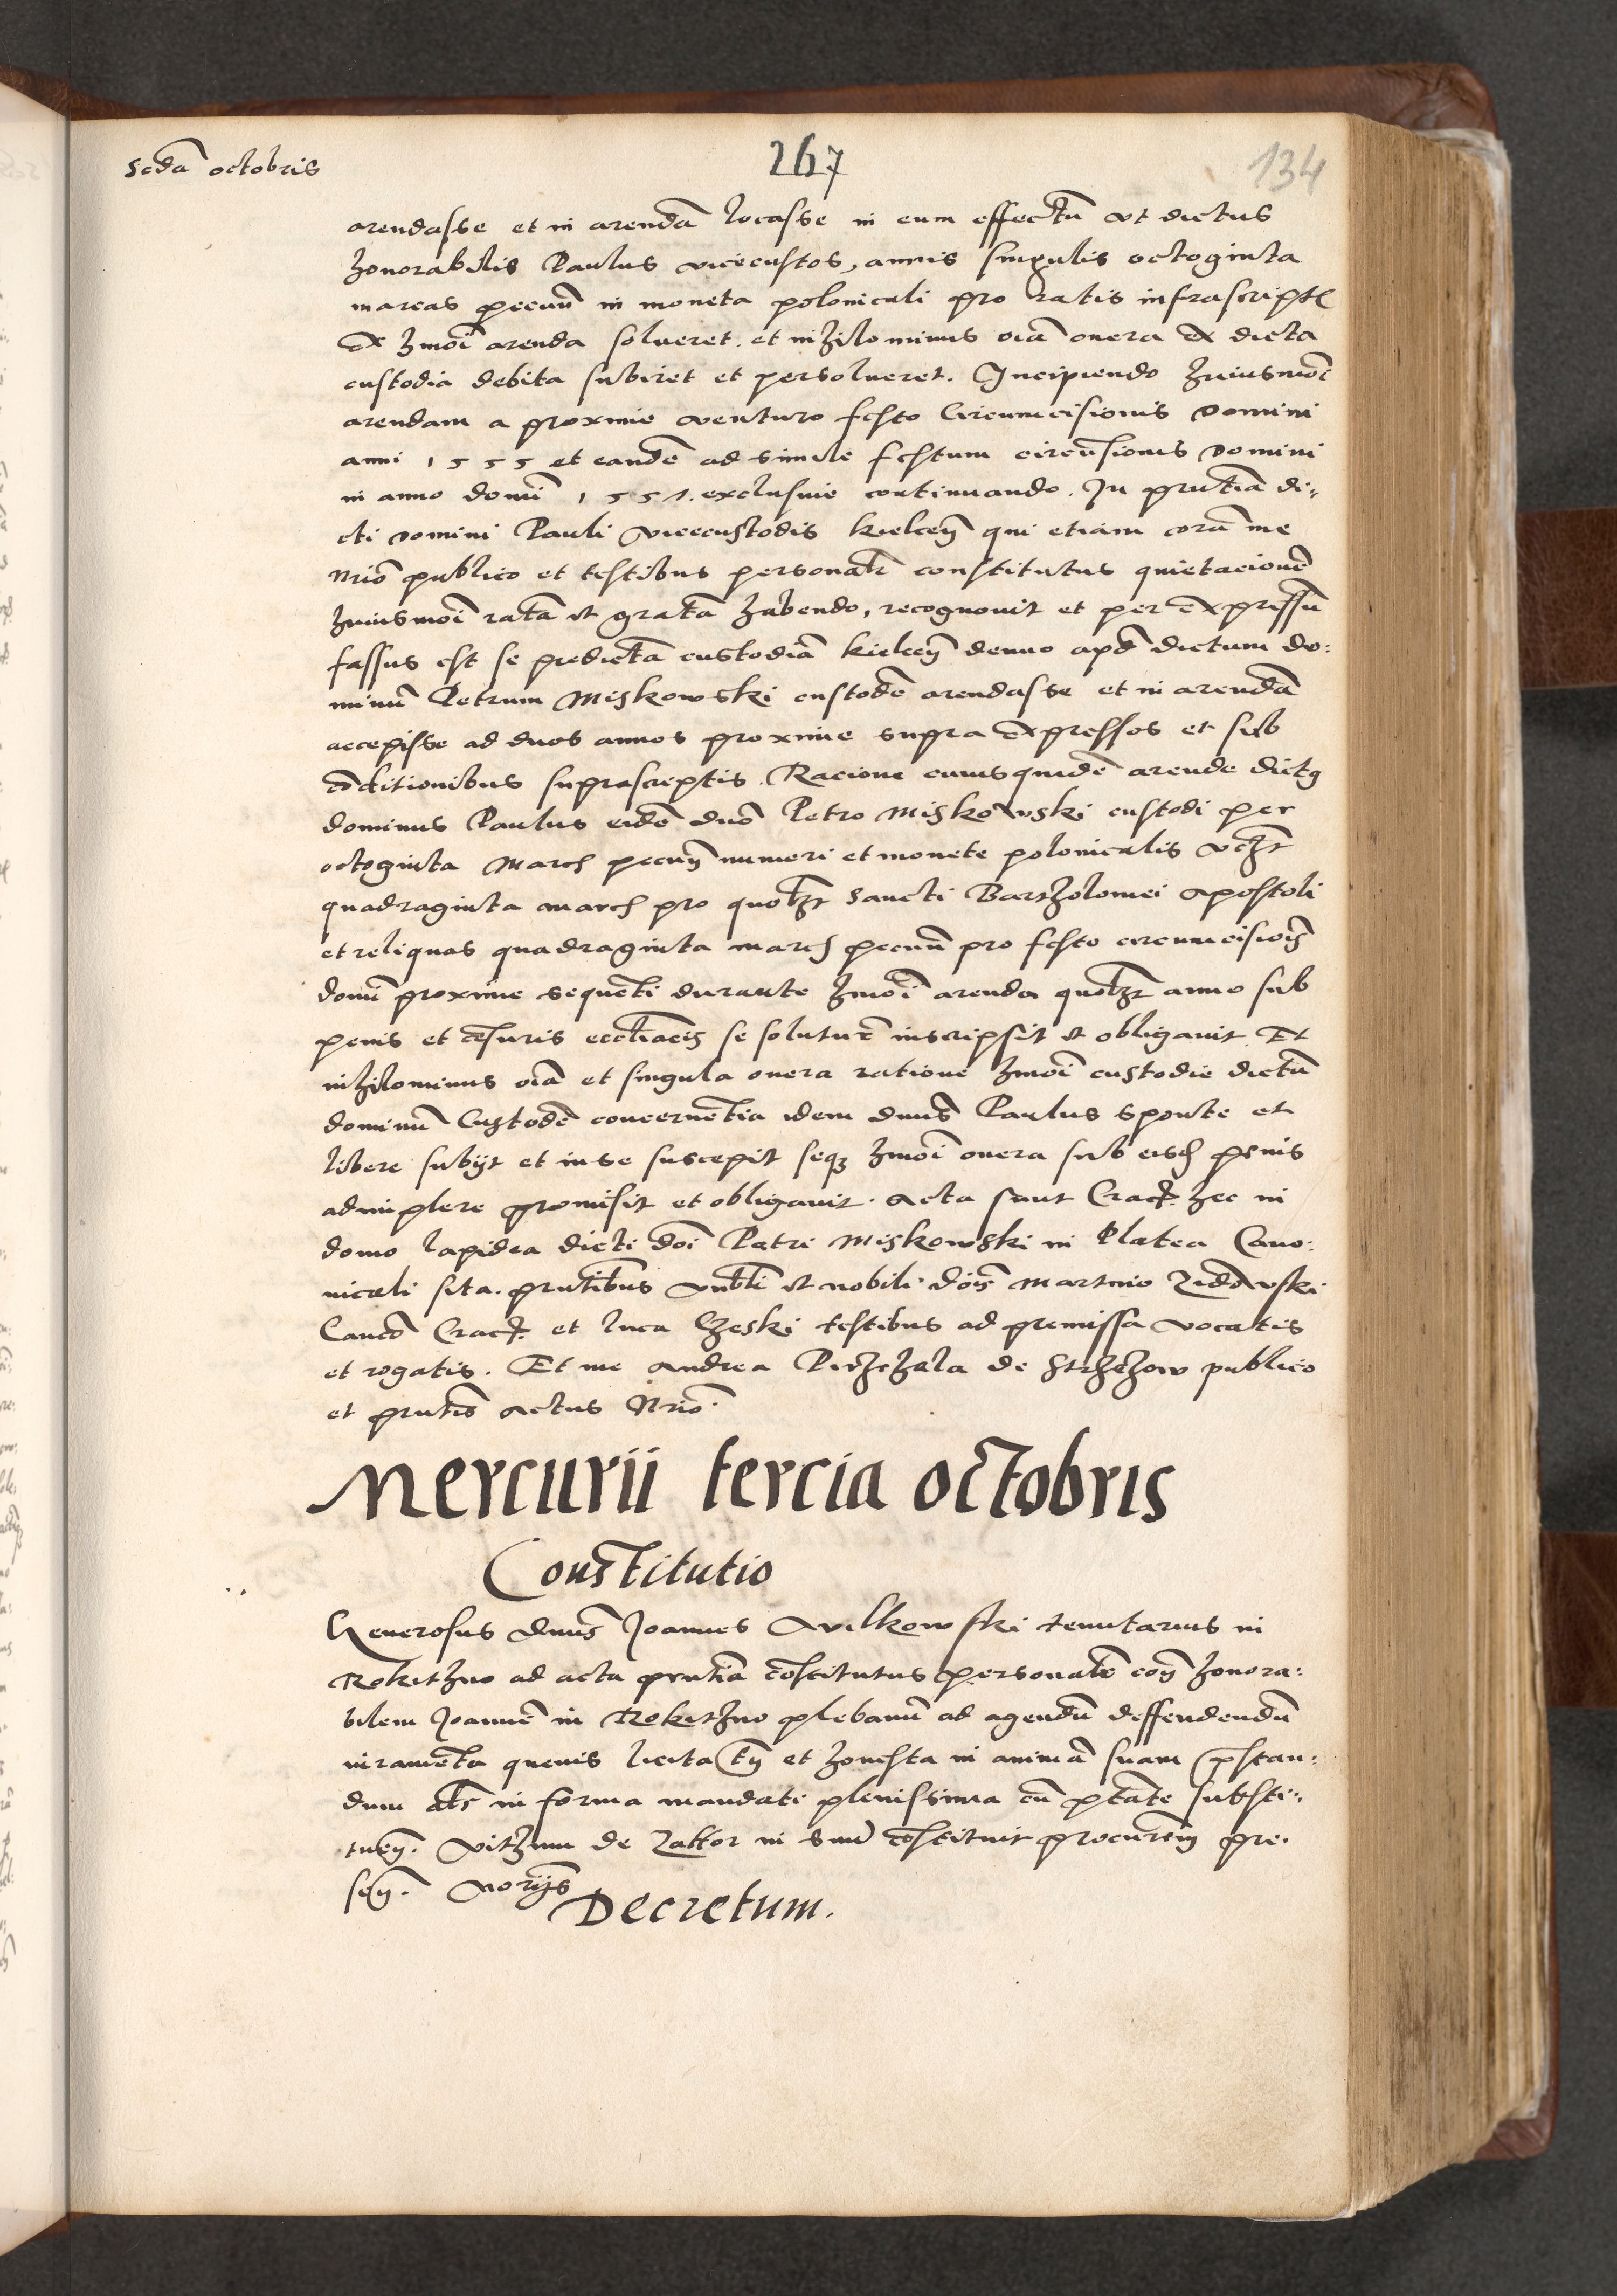 Scda octobris
267
134
arendasse et in arendã locasse in eum effectũ vt dictus
honorabilis Paulus vicecustos, annis singulis octoginta
marcas pecuñ in moneta polonicali pro ratis infrascript
ex hmoĩ arenda solueret. et nihilominus oĩa onera ex dicta
custodia debita subiret et persolueret. Incipiendo huiusmoĩ
arendam a proxime venturo festo Circumcisionis Domini
anni 1555 et eandẽ ad simile festum circũsionis Domini
in anno domĩ 1557. exclusiue continuando. In pñtia di=
cti Domini Pauli vicecustodis kielceñ qui etiam corã me
Nrio publico et testibus personalr constitutus quietacionẽ
huiusmoĩ ratã et gratã habendo, recognouit et per expressũ
fassus est se predictã custodiã kielceñ denuo apd dictum do=
minũ Petrum Miskowski custodẽ arendasse et in arendã
accepisse ad duos annos proxime supra expressos et sub
cõditionibus suprascriptis. Racione cuiusquidẽ arende dictus
dominus Paulus eidẽ dño Petro Miskowski custodi per
octoginta march pecuñ numeri et monete polonicalis vczt
quadraginta march pro quolzt Sancti Bartholomei Apostoli
et reliquas quadraginta march pecuñ pro festo circumcisiois
domĩ proxime sequẽti durante hmoĩ arenda quolzt anno sub
penis et cẽsuris eccliacis se soluturũ inscripsit et obligauit. Et
nihilominus oĩa et singula onera ratione hmoĩ custodie dictũ
dominũ Custodẽ concernẽtia idem dnus Paulus sponte et
libere subijt et in se suscepit seqz hmoĩ onera sub eisd penis
adimplere promisit et obligauit. Acta sunt Crac. hec in
domo lapidea dicti doĩ Petri Miskowski in Platea Cano=
nicali sita. pñtibus vnbli et nobili dois Martino
Canco Crac. et luca Czeski testibus ad premissa vocatis
et rogatis. Et me Andrea de Strzezow publico
et pñtis actus Nrio.
Mercurii tercia octobris
Constitutio
Generosus dnus Joannes Wilkowski tenutarius in
Rokithno ad acta pñtia cõstitutus personalr coñ honora=
bilem Joannẽ in Rokithno plebanũ ad agendũ deffendendũ
iuramẽta queuis licita tñ et honesta in animã suam prestan=
dum als in forma mandati plenissima cũ ptate substi=
tueñ. de Zathor in suũ cõstituit procurem pre=
señ.
Decretum.